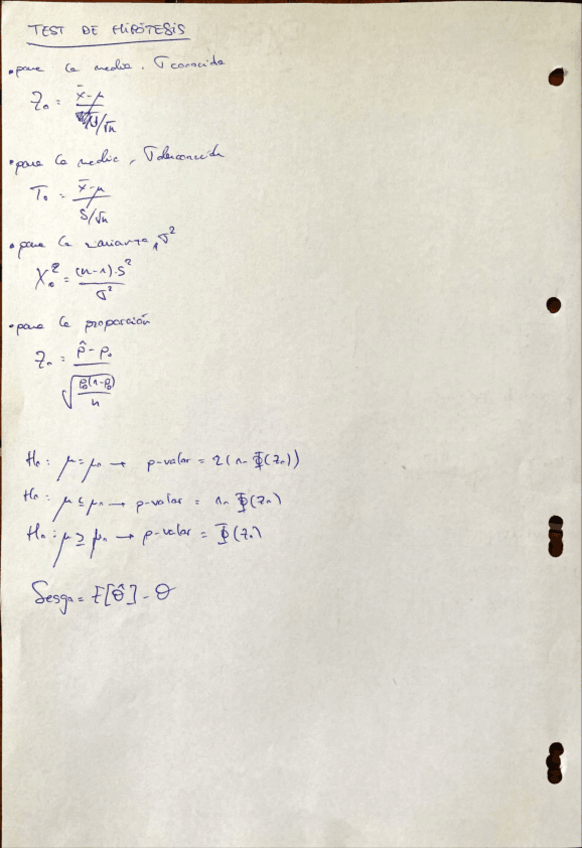 TEST DE HIPÓTESIS
• para la media, σ conocida
Z₀ = (x̄-μ)/(σ/√n)
• para la media, σ desconocida
T₀ = (x̄-μ)/(S/√n)
• para la varianza, σ²
X₀² = (n-1)·S²/σ²
• para la proporción
Z₀ = (p̂ - p₀)/√(p₀(1-p₀)/n)
H₀: μ = μ₀ → p-valor = 2(1-Φ(z₀))
H₀: μ ≤ μ₀ → p-valor = 1-Φ(z₀)
H₀: μ ≥ μ₀ → p-valor = Φ(z₀)
Sesgo = E[θ̂] - θ